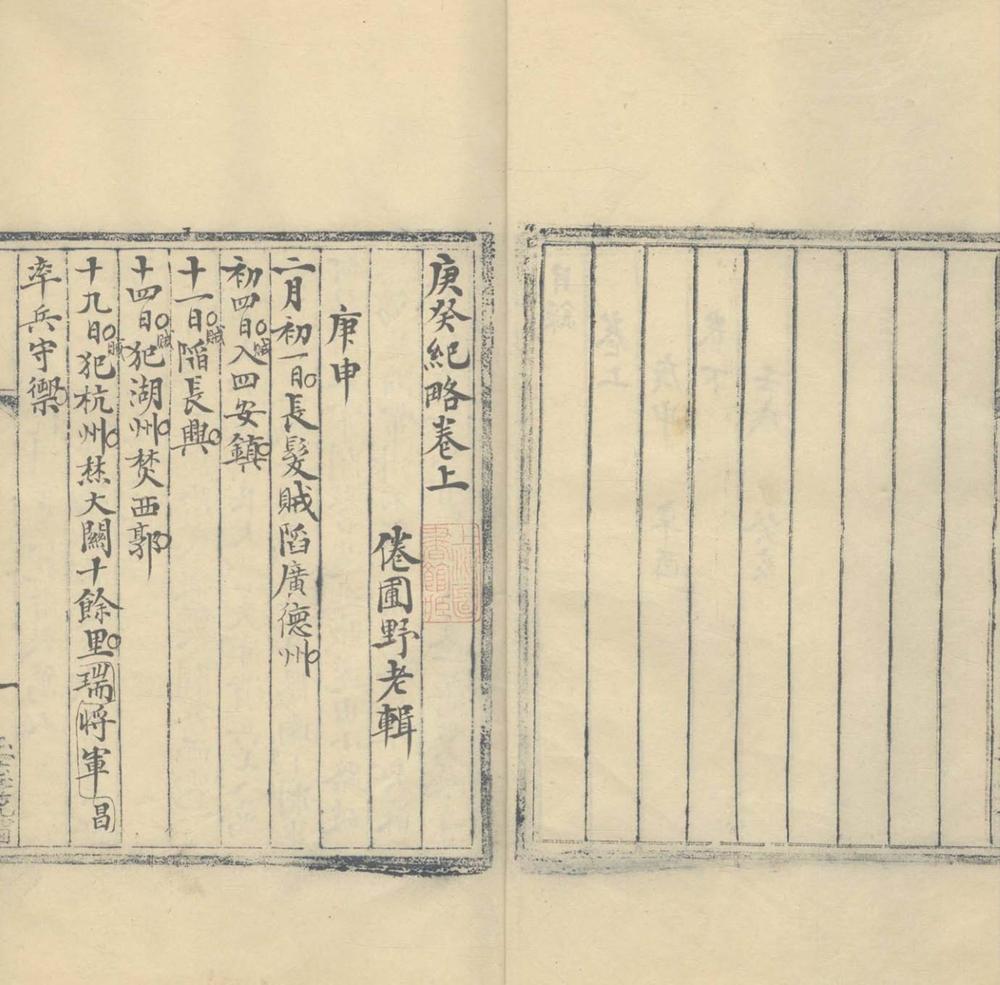 庚癸紀略卷上
倦圃野老輯
庚申
二月初一日長髮賊陷廣德州
初四日賊入四安鎮
十一日賊陷長興
十四日賊犯湖州焚西郭
十九日賊犯杭州焚大關十餘里瑞將軍昌
率兵守禦
一